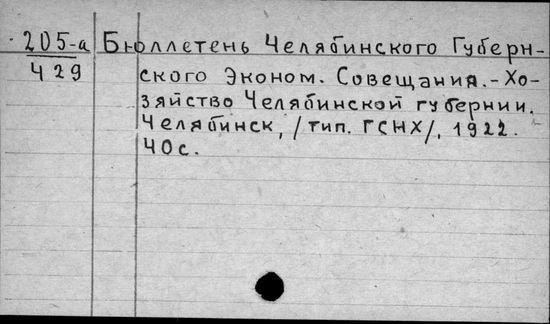 205-а Бюллетень Челябинского Губерн-
429 ского Эконом. Совещания.-Хо-
зяйство Челябинской губернии.
Челябинск, /тип. ГСНХ/, 1922.
40с.